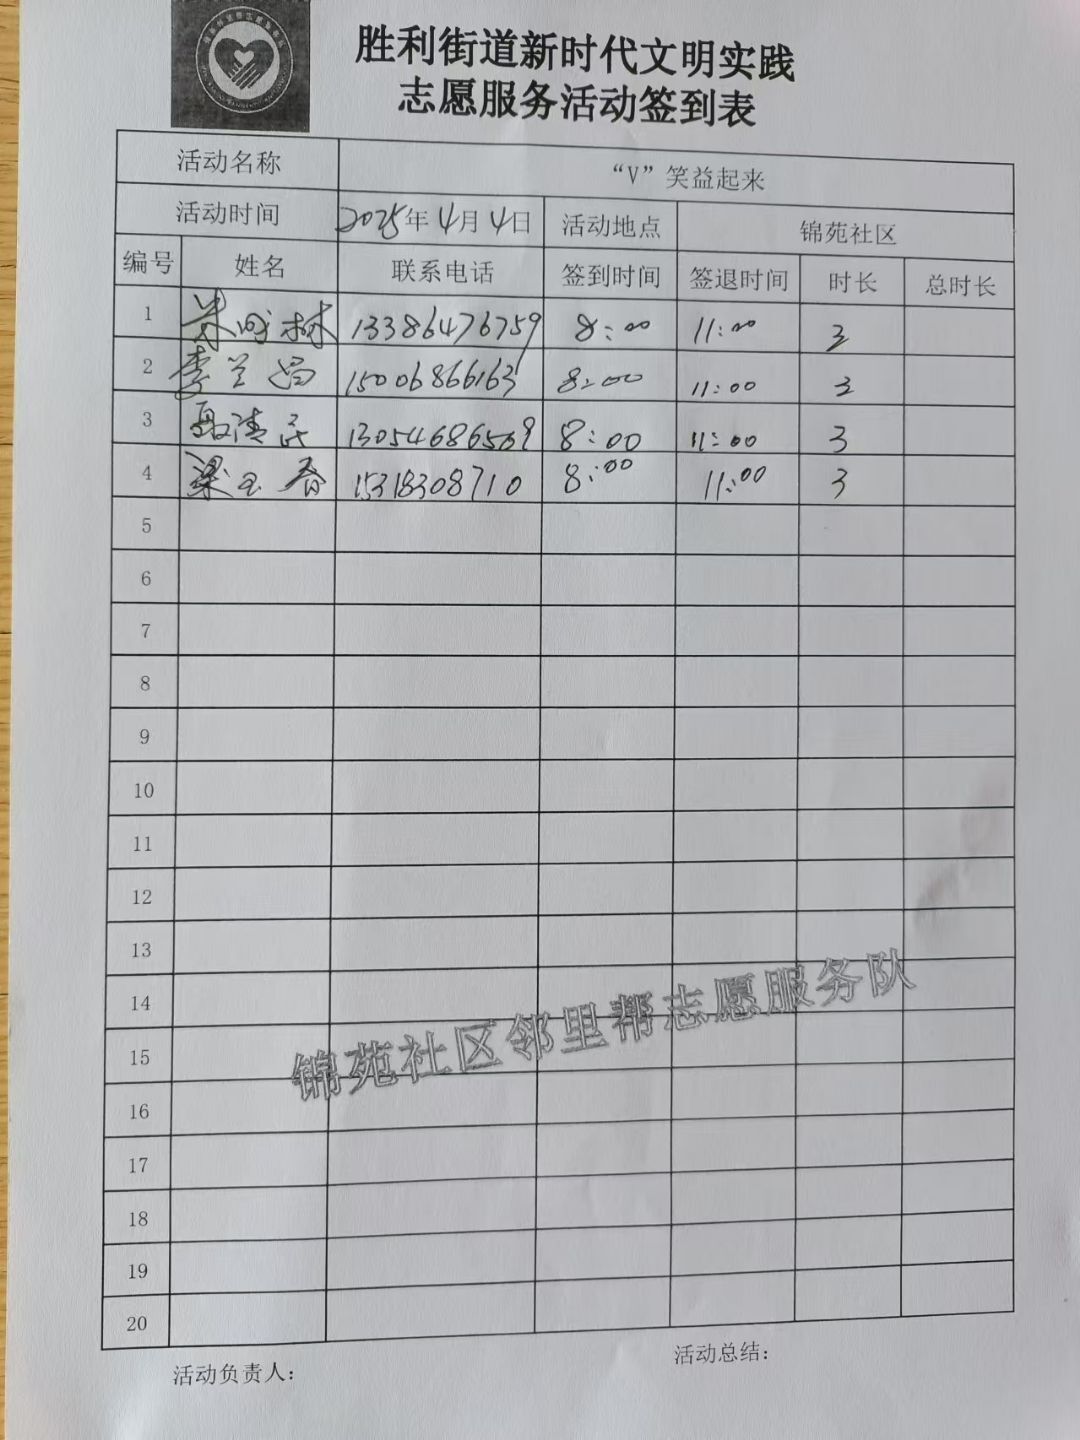 胜利街道新时代文明实践
志愿服务活动签到表
活动名称 “V”笑益起来
活动时间 2025年4月4日 活动地点 锦苑社区
编号 姓名 联系电话 签到时间 签退时间 时长 总时长
1 朱 林 13386476759 8:00 11:00 3
2 李兰 15006866163 8:00 11:00 3
3 清 13054686569 8:00 11:00 3
4 梁玉春 15318308710 8:00 11:00 3
5
6
7
8
9
10
11
12
13
14
15
锦苑社区邻里帮志愿服务队
16
17
18
19
20
活动负责人： 活动总结：